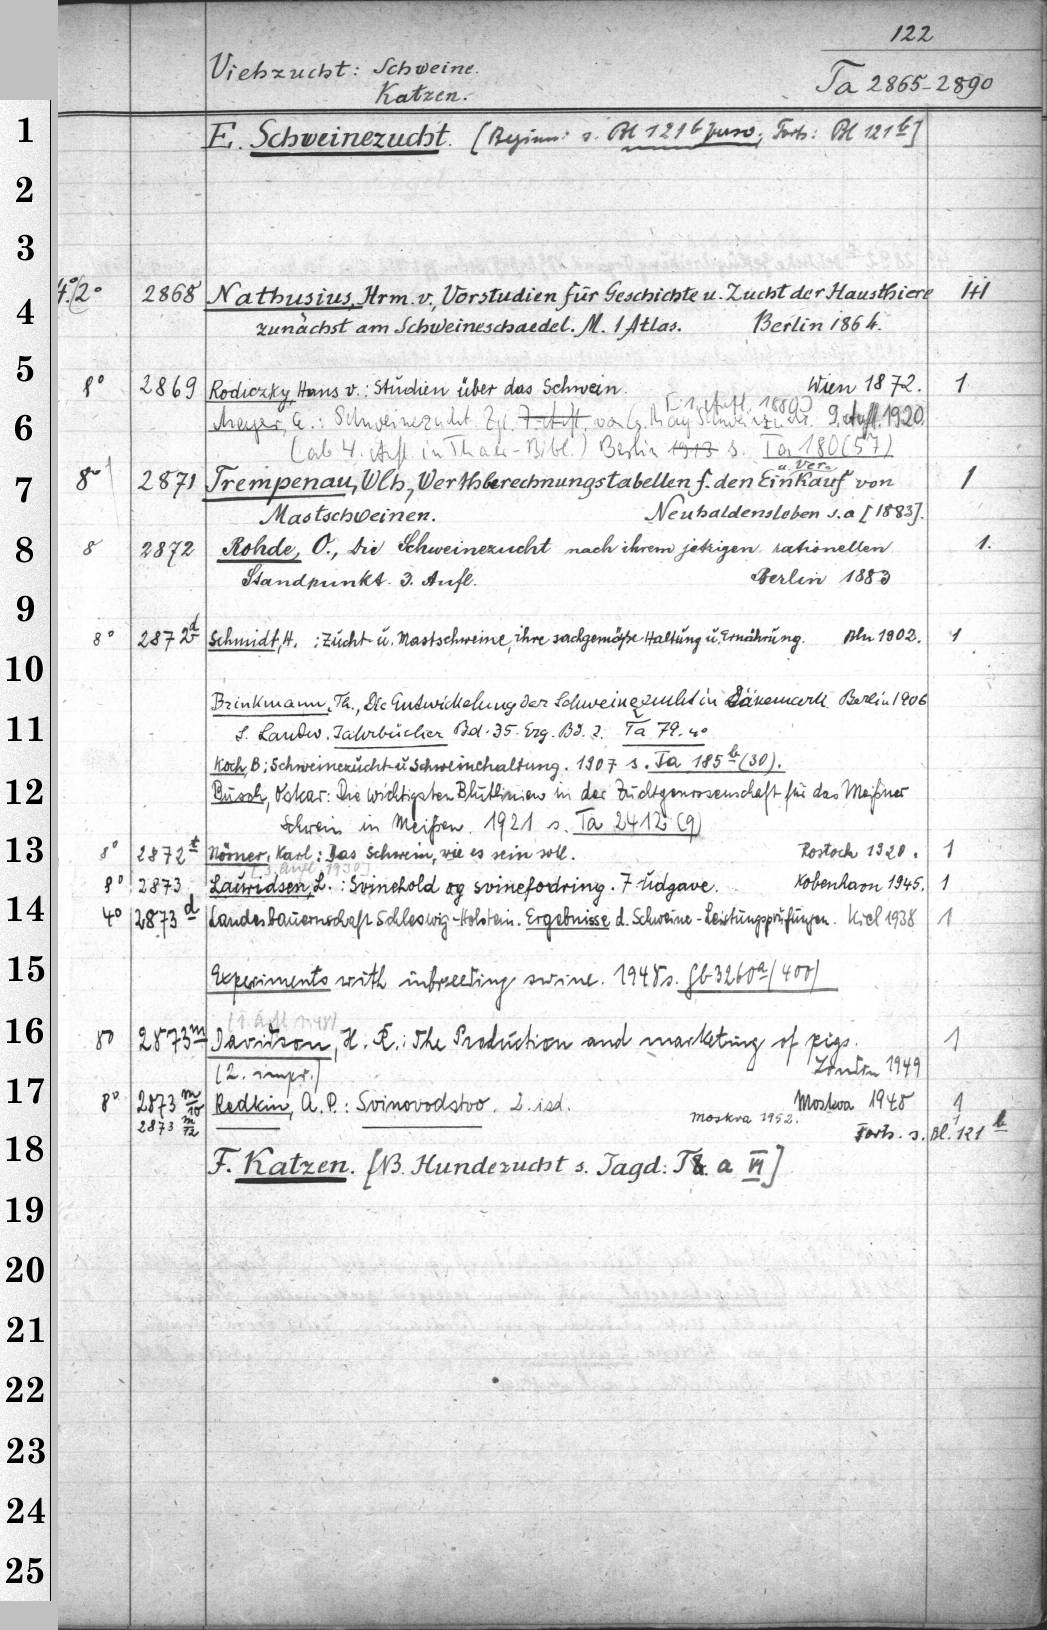 122
Viehzucht: Schweine.
Katzen.
Ta 2865-2890
1
E. Schweinezucht. [Beginn: s. Bl 121b ; Forts: Bl 121b]
2
3
4°/2° 2868 Nathusius, Hrm. v., Vorstudien für Geschichte u. Zucht der Hausthiere
4
zunächst am Schweineschaedel. M. 1 Atlas. Berlin 1864.
5
8° 2869 Rodiczky, Hans v.: Studien über das Schwein. Wien 1872. 1
[1. Aufl. 1889]
6
Meyer, E.: Schweinezucht. 7. Aufl. von G. May Schweinezucht. 9. Aufl. 1920.
(ab 4. Aufl. in Thaer-Bibl.) Berlin 1913 s. Ta 180(57)
u. Ver-
7
8° 2871 Trempenau, Wlh., Werthberechnungstabellen f. den Einkauf von 1
Mastschweinen. Neuhaldensleben s.a [1883].
8
8 2872 Rohde, O., Die Schweinezucht nach ihrem jetzigen rationellen 1.
Standpunkt. 3. Aufl. Berlin 1883
9
8° 2872d Schmidt, H. : Zucht- u. Mastschweine, ihre sachgemäße Haltung u. Ernährung. Bln 1902. 1
10
Brinkmann, Th., Die Entwickelung der Schweinezucht in Dänemark Berlin 1906
11
S. Landw. Jahrbücher Bd. 35. Erg. Bd. 2. Ta 79. 4°
Koch, B.: Schweinezucht u. Schweinehaltung. 1907 s. Ta 185b(30).
12
Busch, Oskar: Die wichtigsten Blutlinien in der Zuchtgenossenschaft für das Meißner
Schwein in Meißen. 1921 s. Ta 2412 (9)
13
8° 2872t Nörner, Karl: Das Schwein, wie es sein soll. Rostock 1920. 1
[3. Aufl. 1930]
8° 2873 Lauridsen, L.: Svinehold og svinefodring. 7 udgave. København 1945. 1
14
4° 2873d Landesbauernschaft Schleswig-Holstein. Ergebnisse d. Schweine-Leistungsprüfungen. Kiel 1938 1
15
Experiments with inbreeding swine. 1948 s. Gb 3260a/400/
[1. Aufl. 1948]
16
8° 2873m Davidson, H. R.: The Production and marketing of pigs. 1
(2. impr.) London 1949
17
8° 2873 m/10 Redkin, A. P.: Svinovodstvo. 2. izd. Moskva 1948 1
2873 m/12 Moskva 1952. 1
Forts. s. Bl. 121b
18
F. Katzen. [NB. Hundezucht s. Jagd: T a VI]
19
20
21
22
23
24
25